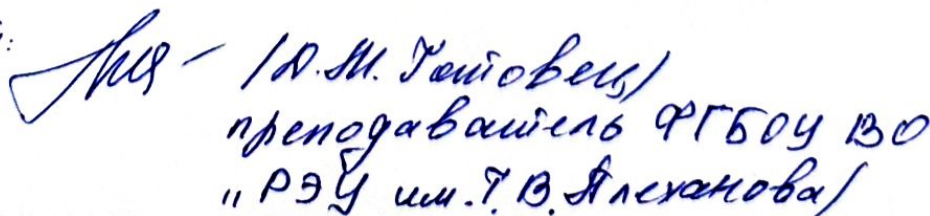 /
преподаватель ФГБОУ ВО
„РЭУ им. Г.В. Плеханова/